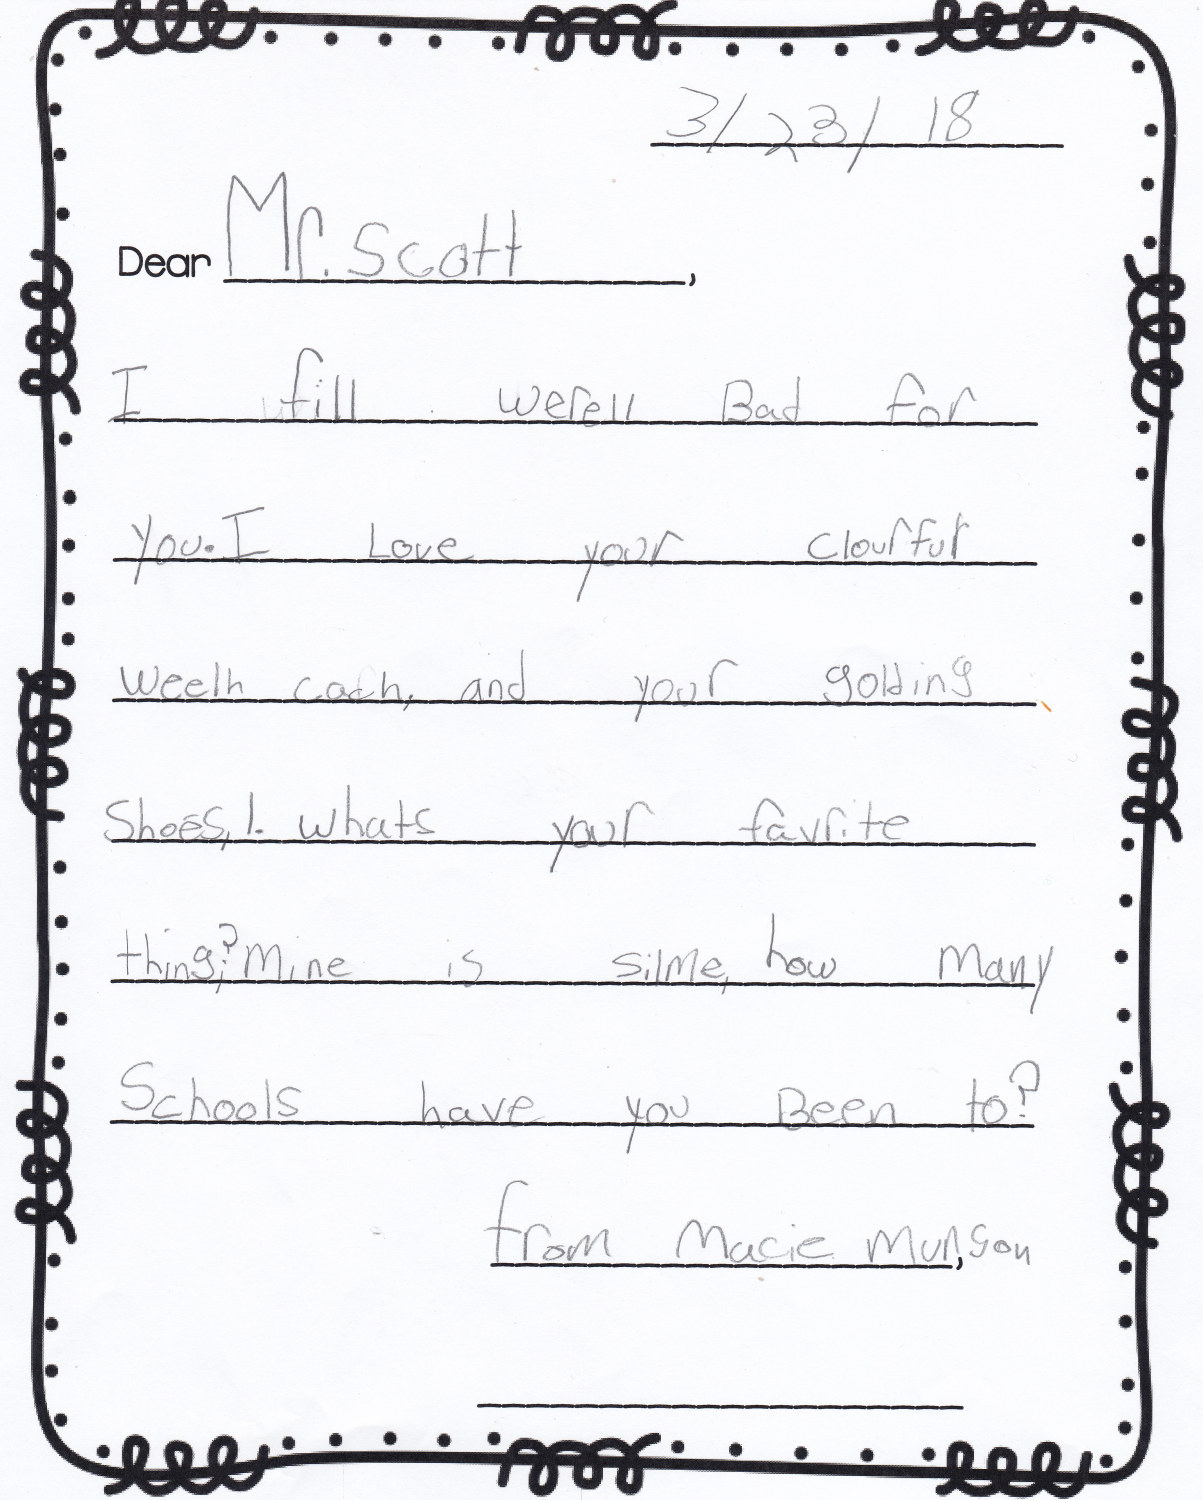 3/23/18
Dear Mr. Scott,
I fill werell Bad for
you. I Love your clourful
weelh cach, and your golding
Shoes,!. whats your favrite
thing;? Mine is silme, how many
Schools have you Been to?
from Macie Munson,